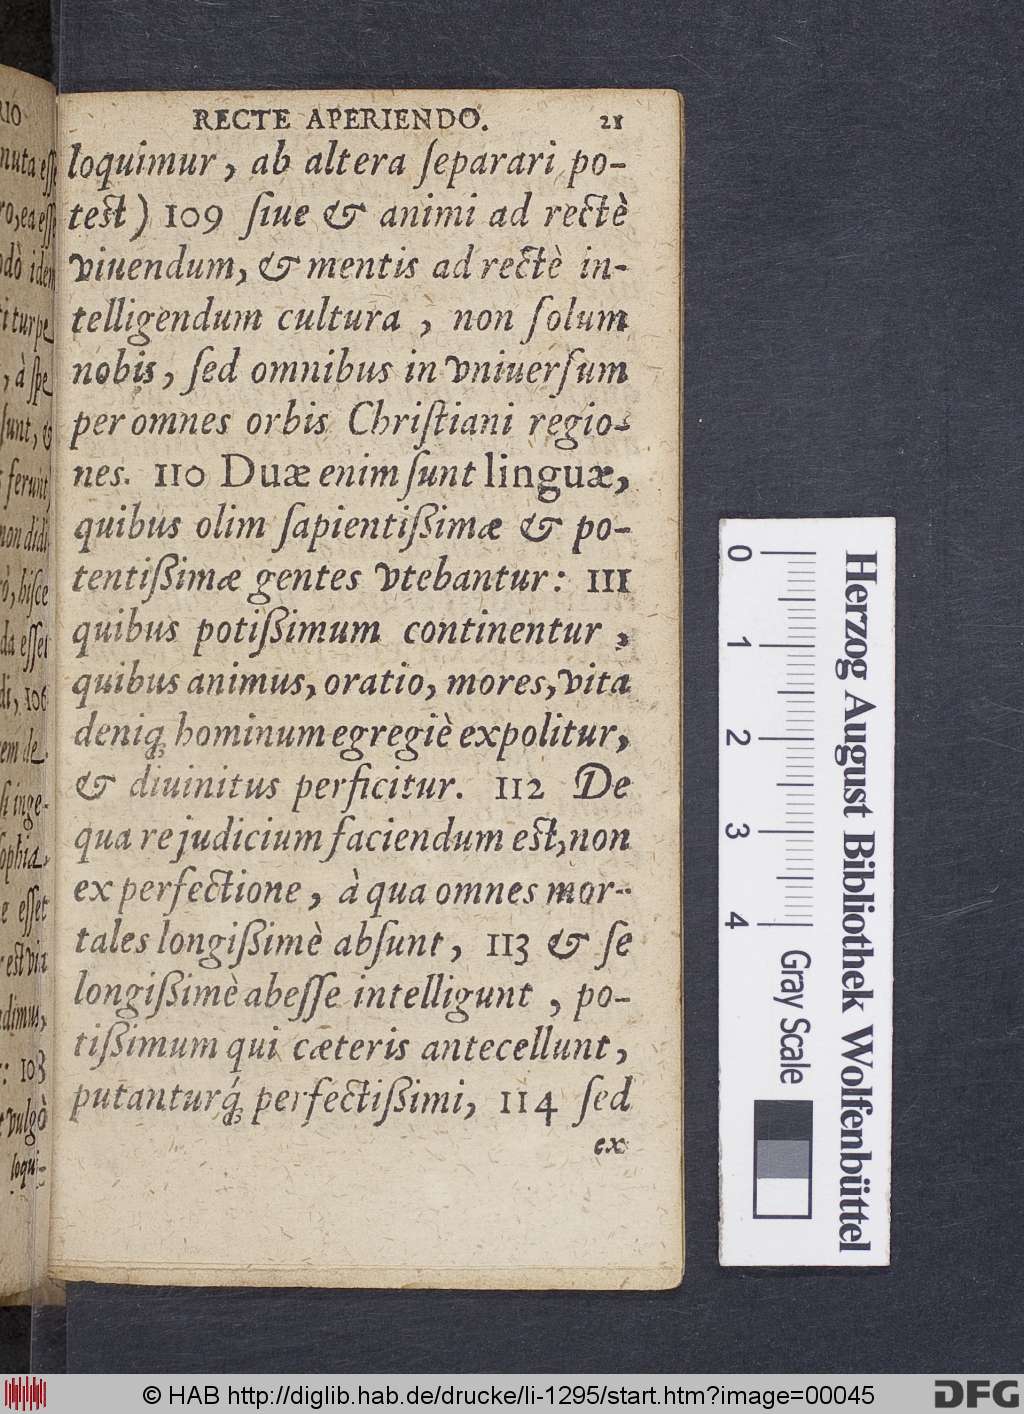 RECTE APERIENDO. 21
loquimur, ab altera ſeparari po-
test) 109 ſiue & animi ad rectè
viuendum, & mentis ad rectè in-
telligendum cultura, non ſolum
nobis, ſed omnibus in vniuerſum
per omnes orbis Chriſtiani regio-
nes. 110 Duæ enim ſunt linguæ,
quibus olim ſapientißimæ & po-
tentißimæ gentes vtebantur: 111
quibus potißimum continentur,
quibus animus, oratio, mores, vita
deniq́ꝫ hominum egregiè expolitur,
& diuinitus perficitur. 112 De
qua re judicium faciendum est, non
ex perfectione, à qua omnes mor-
tales longißimè abſunt, 113 & ſe
longißimè abeſſe intelligunt, po-
tißimum qui cæteris antecellunt,
putanturq́ꝫ perfectißimi, 114 ſed
ex
RIO
nuta eſſe
ro, ea eſſe
odò idem
ti turpe
, à ſpe
ſunt, &
ferunt
non didi
ò, hiſce
da eſſet
di, 106
rem de-
ſi inge-
ſophia
e eſſet
est via
adimus,
: 108
vulgò
loqui-
0
1
2
3
4
Gray Scale
Herzog August Bibliothek Wolfenbüttel
© HAB http://diglib.hab.de/drucke/li-1295/start.htm?image=00045
DFG